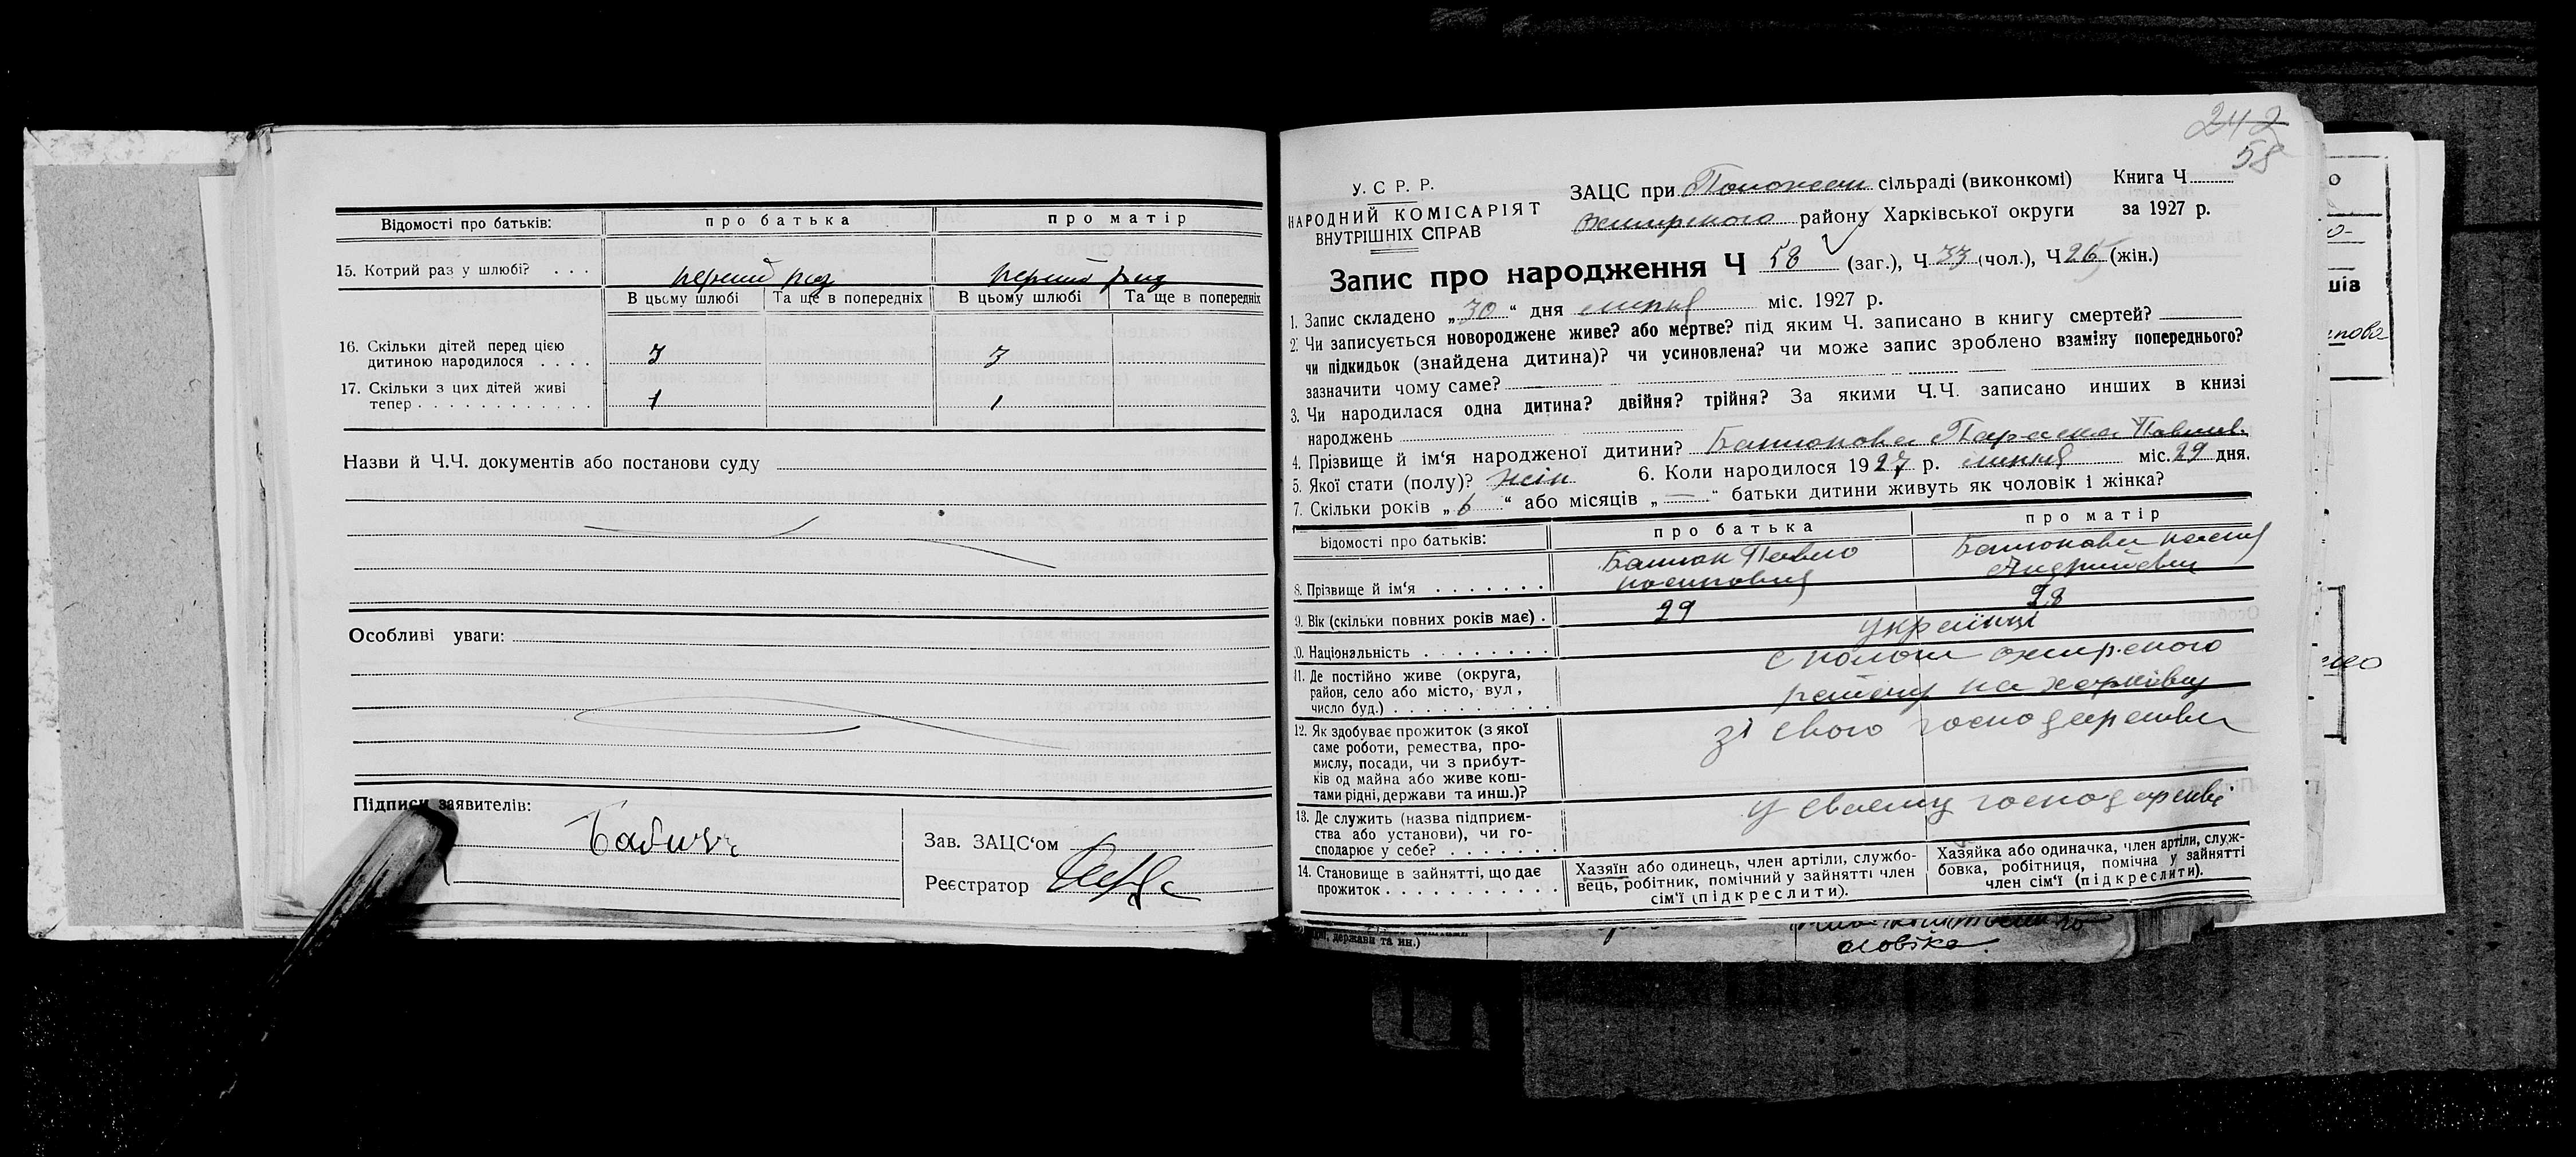 Відомості про батьків: про батька про матір
15. Котрий раз у шлюбі? . . . перший раз перший раз
В цьому шлюбі Та ще в попередніх В цьому шлюбі Та ще в попередніх
16. Скільки дітей перед цією
дитиною народилося . . . . 3 3
17. Скільки з цих дітей живі
тепер . . . . . . . . . . . . . 1 1
Назви й Ч.Ч. документів або постанови суду
Особливі уваги:
Підписи заявителів:
Зав. ЗАЦС‘ом
Реєстратор
242
58
У. С Р. Р.
НАРОДНИЙ КОМІСАРІЯТ
ВНУТРІШНІХ СПРАВ
ЗАЦС при сільраді (виконкомі) Книга Ч
району Харківської округи за 1927 р.
Запис про народження Ч 58 (заг.), Ч 33 (чол.), Ч 26 (жін.)
1. Запис складено „30“ дня липня міс. 1927 р.
2. Чи записується новороджене живе? або мертве? під яким Ч. записано в книгу смертей?
чи підкидьок (знайдена дитина)? чи усиновлена? чи може запис зроблено взаміну попереднього?
зазначити чому саме?
3. Чи народилася одна дитина? двійня? трійня? За якими Ч.Ч. записано инших в книзі
народжень
4. Прізвище й ім‘я народженої дитини? Параска Павлів.
5. Якої стати (полу)? жін 6. Коли народилося 1927 р. липня міс. 29 дня.
7. Скільки років „6“ або місяців „—“ батьки дитини живуть як чоловік і жінка?
Відомості про батьків: про батька про матір
8. Прізвище й ім‘я . . . . . . . Павло
Андріївна
9. Вік (скільки повних років має) . 29 28
0. Національність . . . . . . . . українці
11. Де постійно живе (округа,
район, село або місто, вул,
число буд.) . . . . . . . . . . району на харківщ
12. Як здобуває прожиток (з якої
саме роботи, ремества, про-
мислу, посади, чи з прибут-
ків од майна або живе кош-
тами рідні, держави та инш.)? зі свого господарства
13. Де служить (назва підприєм-
ства або установи), чи го-
сподарює у себе? . . . . . . . у своєму господарстві
14. Становище в зайнятті, що дає
прожиток . . . . . . . . . . .
Хазяїн або одинець, член артілі, службо-
вець, робітник, помічний у зайнятті член
сім‘ї (підкреслити).
Хазяйка або одиначка, член артіли, служ-
бовка, робітниця, помічна у зайнятті
член сім‘ї (підкреслити).
держави та ин.)